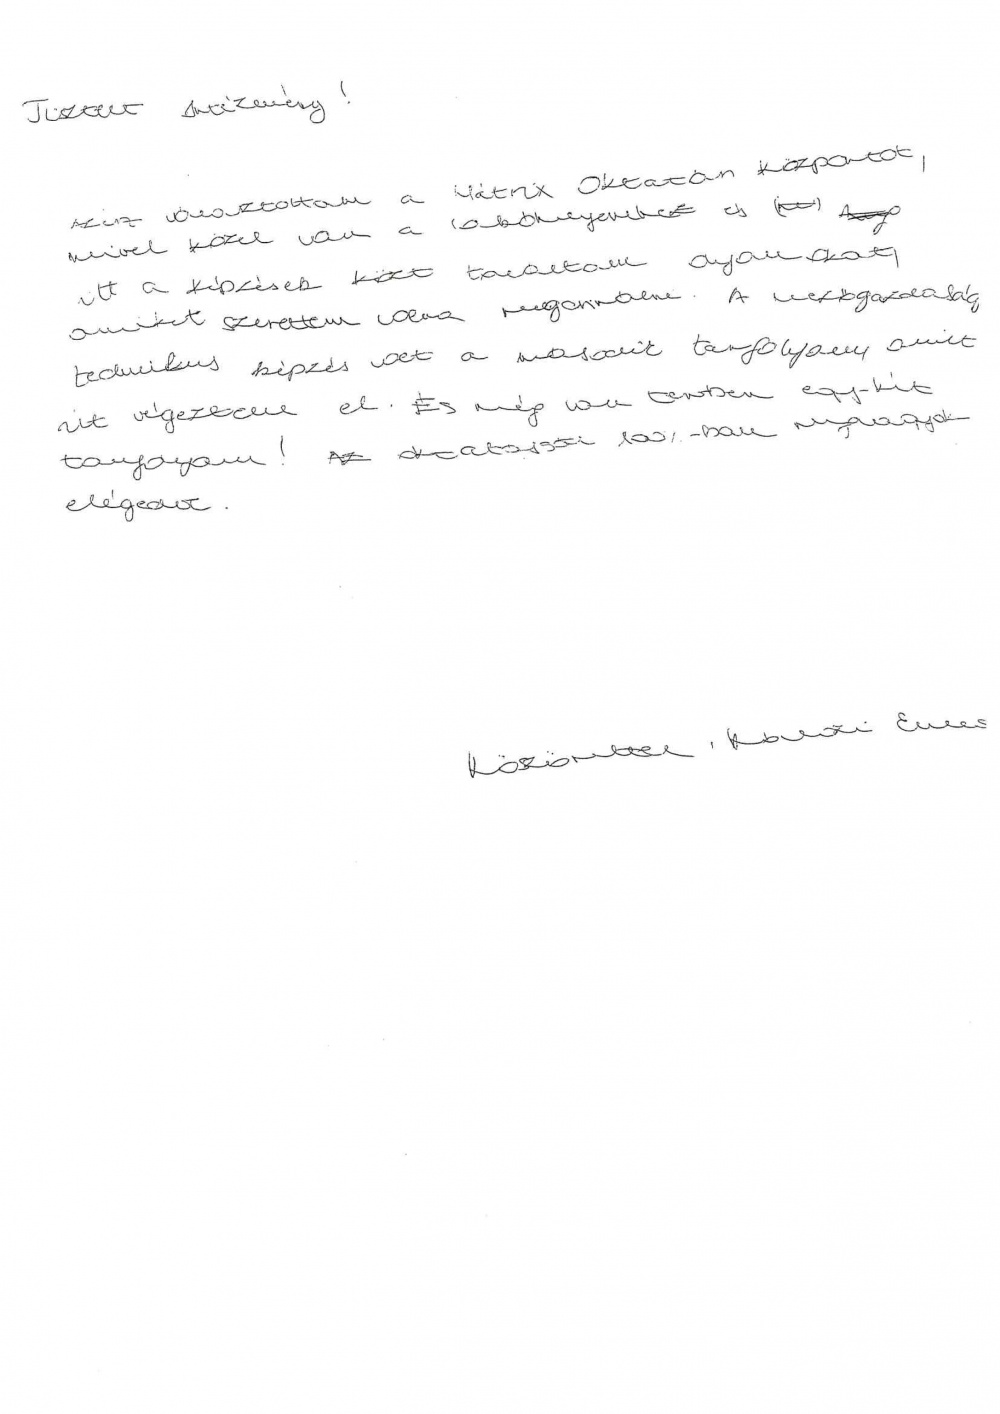 Tisztelt Intézmény!
Azért választottam a Mátrix Oktatási Központot,
mivel közel van a lakóhelyemhez és
itt a képzések közt találtam olyanokat,
amiket szerettem volna megcsinálni. A mezőgazdasági
technikus képzés volt a második tanfolyam amit
itt végeztem el. És még van tervben egy-két
tanfolyam! Az oktatással 100%-ban vagyok
elégedett.
Köszönettel,